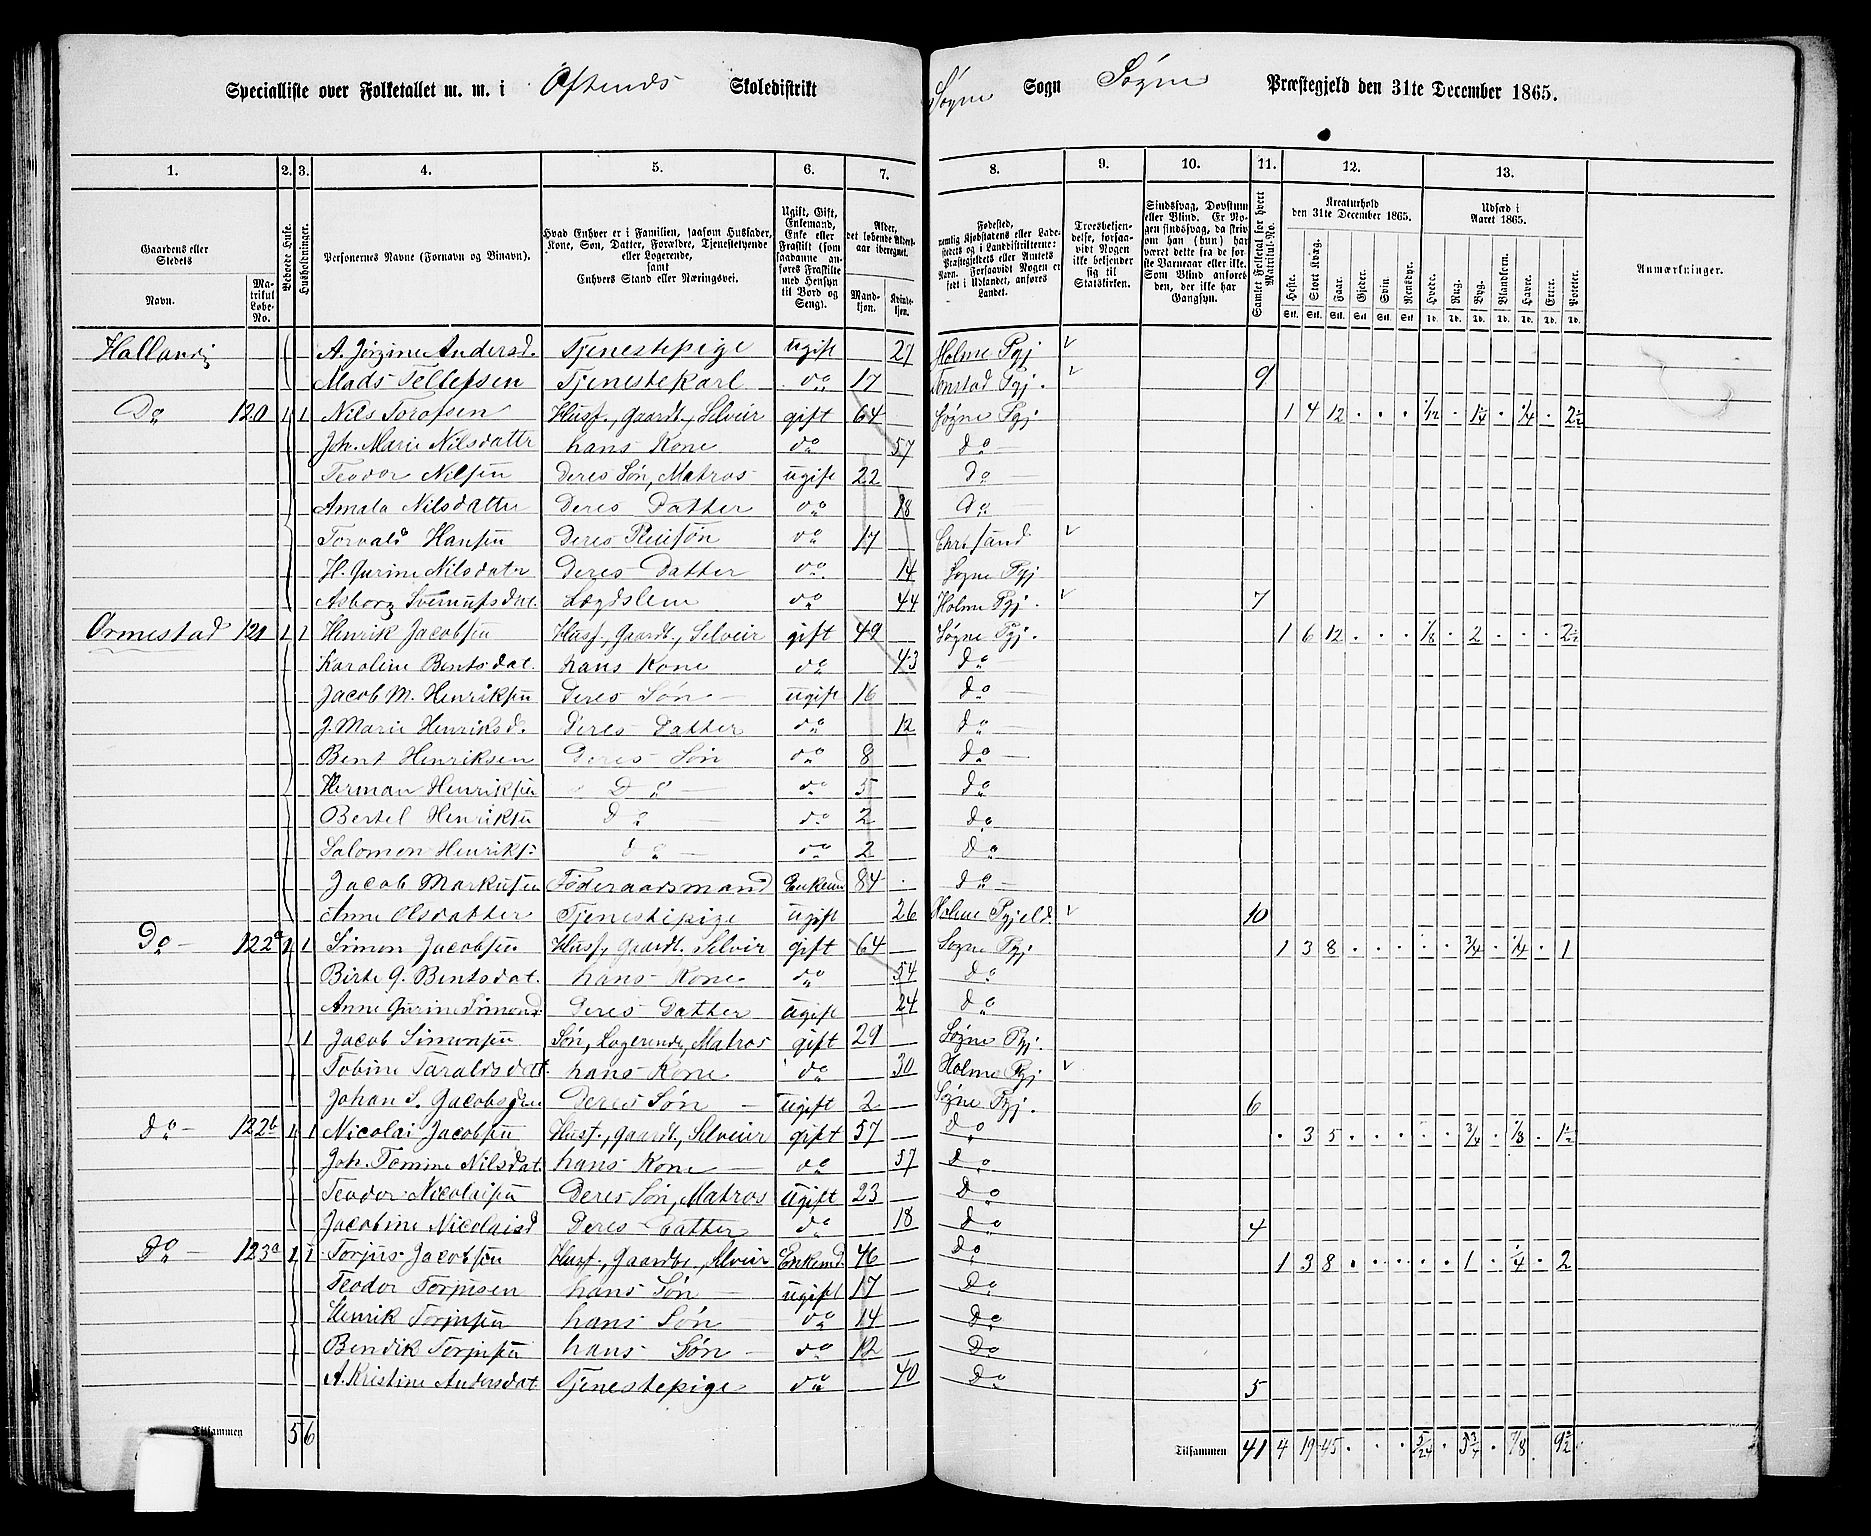 Specialliste over Folketallet m. m. i Øftenæs Skoledistrikt Søgne Sogn Søgne Præstegjeld den 31te December 1865.
1. 2. 3. 4. 5. 6. 7. 8. 9. 10. 11. 12. 13.
Gaardens eller Stedets Navn. Matrikul Løbe-No. Beboede Huse. Husholdninger. Personernes Navne (Fornavn og Binavn).
Hvad Enhver er i Familien, saasom Husfader, Kone, Søn, Datter, Forældre, Tjenestetyende eller Logerende, samt Enhvers Stand eller Næringsvei.
Ugift, Gift, Enkemand, Enke eller Fraskilt (som saadanne anføres Fraskilte med Hensyn til Bord og Seng).
Alder, det løbende Aldersaar iberegnet. Mandkjøn. Kvindekjøn.
Fødested, nemlig Kjøbstadens eller Ladestedets og i Landdistrikterne: Præstegjeldets eller Amtets Navn. Forsaavidt Nogen er født i Udlandet, anføres Landet.
Troesbekjendelse, forsaavidt Nogen ikke bekjender sig til Statskirken.
Sindssvag, Døvstum eller Blind. Er Nogen sindssvag, da skrives om han (hun) har været dette fra første Barneaar eller ikke. Som Blind anføres den, der ikke har Gangsyn.
Samlet Folketal for hvert Matrikul-No.
Kreaturhold den 31te December 1865. Heste. Stort Kvæg. Faar. Gjeder. Svin. Rensdyr.
Udsæd i Aaret 1865. Hvede. Rug. Byg. Blandkorn. Havre. Erter. Poteter.
Anmærkninger.
A. Jørgine Andersd. Tjenestepige ugift 27 Holme Pgj v
Mads Tellefsen Tjenestekarl do 17 Pgj. v 9
Do 120 1 1 Nils Torafsen Husf., Gaardb., Selveier gift 64 Søgne Pgj 1 4 12 . . . 1/12 . 1¼ . ¼ . 2½
Joh. Marie Nilsdattr hans Kone do 57 do
Teodor Nilsen Deres Søn, Matros ugift 22 do
Amala Nilsdatter Deres Datter do 18 do
Torvald Hansen Deres Pleiesøn do 17 Chrisand v
H. Gurine Nilsdatr Deres Datter do 14 Søgne Pgj
Asborg dat. Lægdslem do 44 Holme Pgj. v 7
Ormestad 121 1 1 Henrik Jacobsen Husf., Gaardb., Selveier gift 49 Søgne Pgj. 1 6 12 . . . 1/8 . 2 . . . 2½
Karoline Bentsdat. hans Kone do 43 do
Jacob M. Henriksen Deres Søn ugift 16 do
J. Marie Henriksd. Deres Datter do 12 do
Bent Henriksen Deres Søn do 8 do
Herman Henriksen Do do 5 do
Bertel Henriksen Do do 2 do
Salomon Henriks: do do 2 do
Jacob Markusen Føderaadsmand Enkemd 84 do
Anne Olsdatter Tjenestepige ugift 26 Holme Pgjeld. v 10
Do 122a 1 1 Simon Jacobsen Husf, Gaardb. Selveir gift 64 Søgne Pgj 1 3 8 . . . . . ¾ . ¼ . 1
Birte G. Bentsdat. hans Kone do 54 do
Anne Gurine Simonsd Deres Datter ugift 24 do
1 Jacob Simonsen Søn, Logerende, Matros gift 29 Søgne Pgj.
Tobine Taraldsdatt hans Kone do 30 Holme Pgj v
Johan S. Jacobsen Deres Søn ugift 2 Søgne Pgj. 6
do 122b 1 1 Nicolai Jacobsen Husf., Gaardb., Selveier gift 57 do . 3 5 . . . . . ¾ . 1/8 . 1½
Joh. Tomine Nilsdat. hans Kone do 57 do
Teodor Nicolaisen Deres Søn, Matros ugift 23 do
Jacobine Nicolaisd Deres Datter do 18 do 4
Do 123a 1 1 Torjus Jacobsen Husf., Gaardbr, Selveir Enkemd. 46 do 1 3 8 . . . . . 1 . ¼ . 2
Teodor Torjusen hans Søn ugift 17 do
Henrik Torjusen hans Søn do 14 do
Bendik Torjusen hans Søn do 12 Do
A. Kristine Andersdat. Tjenestepige do 40 do 5
Tilsammen 5 6 Tilsammen 41 4 19 45 . . . 5/24 . 5¾ . 7/8 . 9½